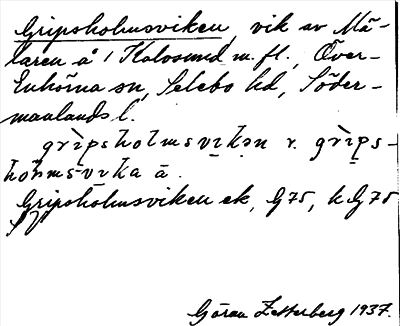 Gripsholmsviken, vik av Mä-
laren å 1 Kalvsund m. fl., Över-
Enhörna sn, Selebo hd, Söder-
manlands l.
grìpsholmsvikən v. grìps-
hòlmsvika ä.
Gripsholmsviken ek, G 75, k G 75
Göran Zetterberg 1937.